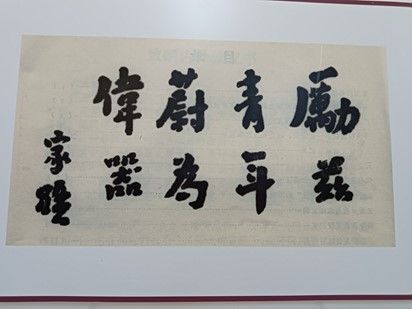 勵茲
青年
蔚為
偉器
家驊